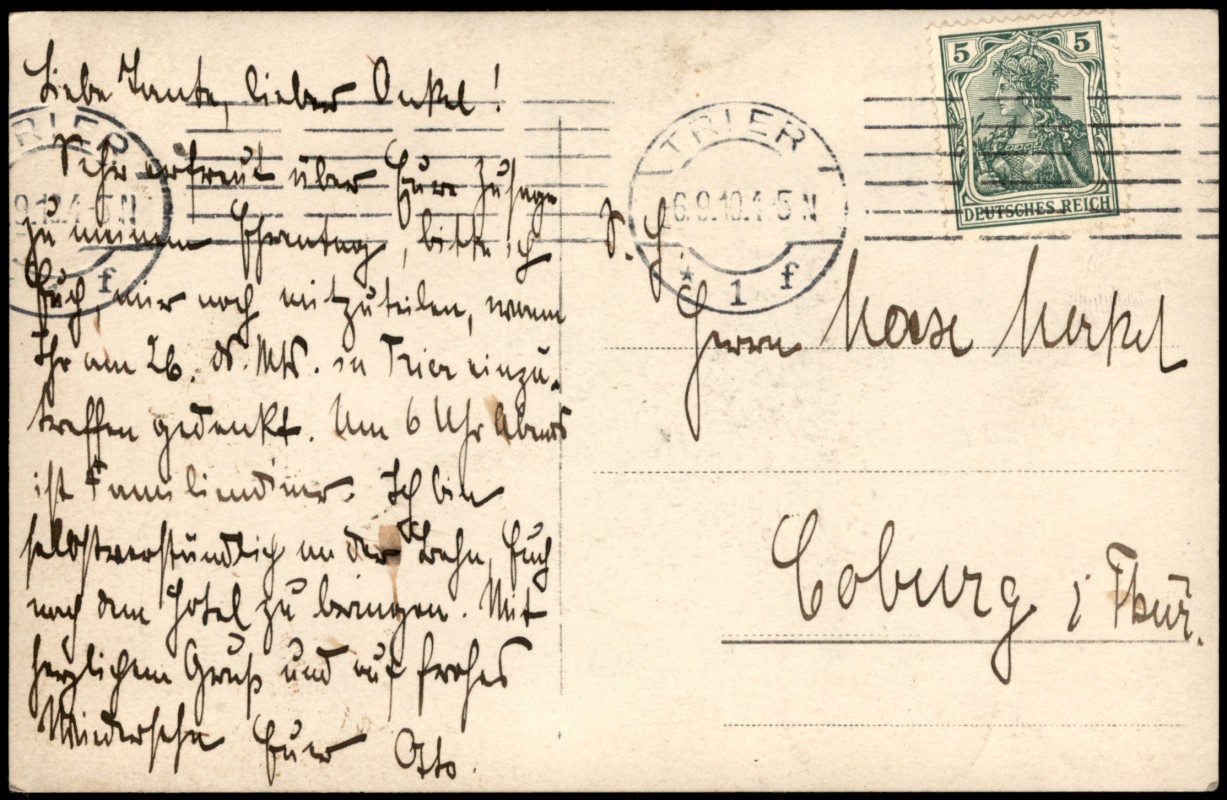 Liebe Tante, lieber Onkel!
Sehr erfreut über Eure Zusage
zu meinem Ehrentag, bitte ich
Euch mir noch mitzuteilen, wann
Ihr am 26. ds. Mts. in Trier einzu-
treffen gedenkt. Um 6 Uhr Abends
ist Familiendiner. Ich bin
selbstverständlich an der Bahn, Euch
nach dem Hotel zu bringen. Mit
herzlichem Gruß und auf frohes
Wiedersehn Euer Otto.
TRIER
9.10.4-5N
f
TRIER
6.9.10.4-5N
* 1 f
5 5
DEUTSCHES REICH
S. H.
Herrn Merkel
Coburg i Thür.